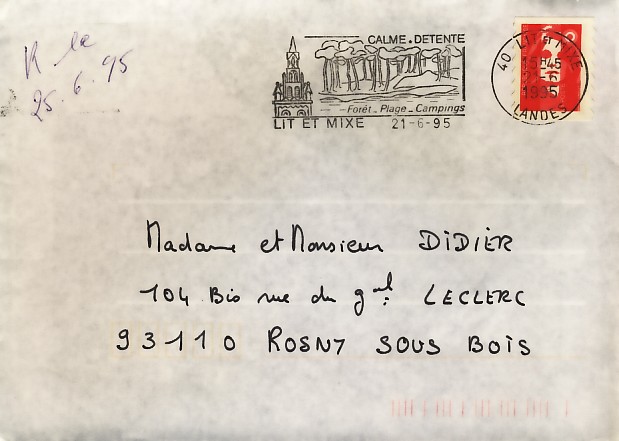 R le
25.6.95
CALME.DETENTE
Forêt_Plage_Campings
LIT ET MIXE 21-6-95
40 LIT ET MIXE
15H45
21-6
1995
LANDES
Madame et Monsieur DIDIER
104 Bis rue du gal. LECLERC
93110 ROSNY SOUS BOIS